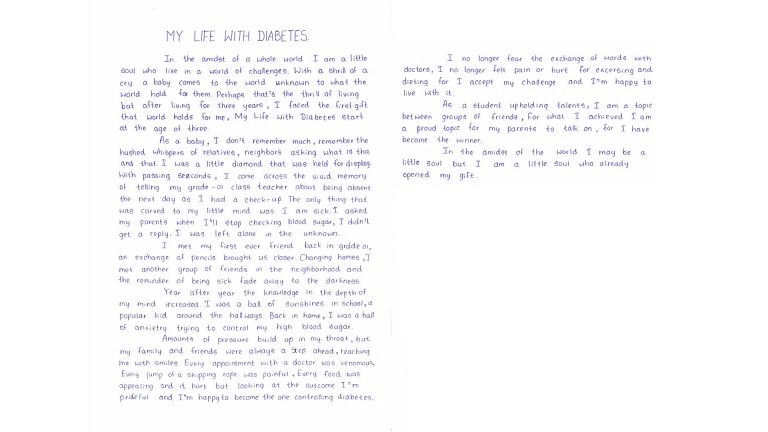 MY LIFE WITH DIABETES.
In the amidst of a whole world I am a little
soul who live in a world of challenges. With a thrill of a
cry a baby comes to the world unknown to what the
world hold for them. Perhaps that's the thrill of living
but after living for three years, I faced the first gift
that world holds for me, My Life with Diabetes start
at the age of three.
As a baby, I don't remember much, remember the
hushed whispers of relatives, neighbors asking what is this
and that. I was a little diamond that was held for display
With passing seconds, I come across the vivid memory
of telling my grade-01 class teacher about being absent
the next day as I had a check-up. The only thing that
was carved to my little mind was I am sick. I asked
my parents when I'll stop checking blood sugar, I didn't
get a reply. I was left alone in the unknown.
I met my first ever friend back in grade 01,
an exchange of pencils brought us closer. Changing homes, I
met another group of friends in the neighborhood and
the reminder of being sick fade away to the darkness.
Year after year the knowledge in the depth of
my mind increased. I was a ball of sunshines in school, a
popular kid around the hallways. Back in home, I was a ball
of anxietry trying to control my high blood sugar.
Amounts of pressure build up in my throat, but
my family and friends were always a step ahead, reaching
me with smiles. Every appointment with a doctor was venomous,
Every jump of a skipping rope was painful, Every food was
appealing and it hurt but looking at the outcome I'm
prideful and I'm happy to become the one controlling diabetes.
I no longer fear the exchange of words with
doctors, I no longer felt pain or hurt for excersing and
dieting for I accept my challenge and I'm happy to
live with it.
As a student upholding talents, I am a topic
between groups of friends, for what I achieved I am
a proud topic for my parents to talk on, for I have
become the winner.
In the amidst of the world I may be a
little soul but I am a little soul who already
opened my gift.